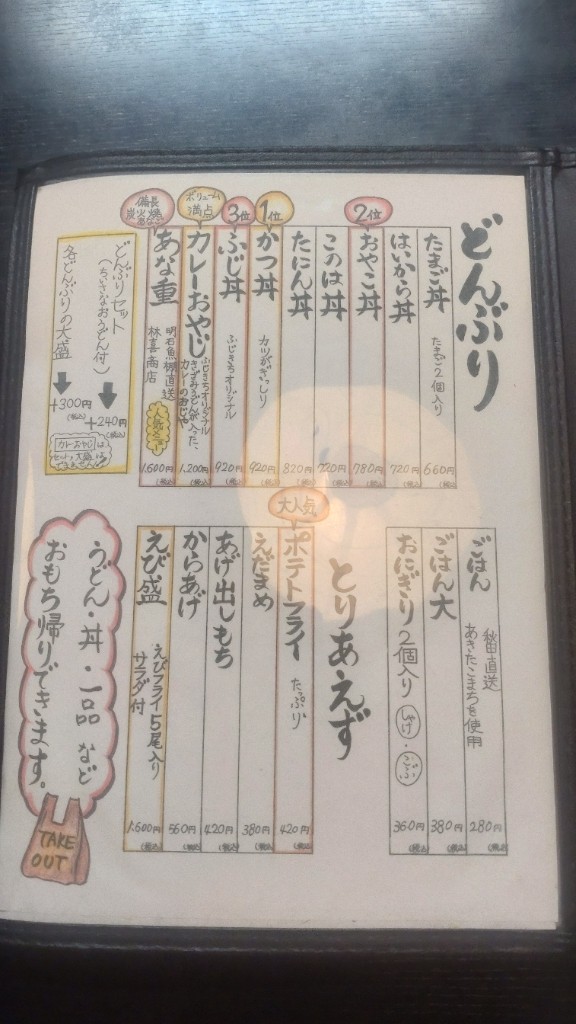 どんぶり
たまご丼 たまご2個入り 660円(税込)
はいから丼 720円(税込)
2位
おやこ丼 780円(税込)
このは丼 720円(税込)
たにん丼 820円(税込)
1位
かつ丼 カツがぎっしり 920円(税込)
3位
ふじ丼 ふじきちオリジナル 920円(税込)
ボリューム満点
カレーおやじ ふじきちオリジナル
きざみうどんが入った、
カレーのおじや
1,200円(税込)
備長炭火焼
あな重 明石魚棚直送
林喜商店
1,600円(税込)
どんぶりセット
(ちいさなおうどん付)
+240円(税込)
各どんぶりの大盛
+300円(税込)
カレーおやじは
セット、大盛は
できません
ごはん 秋田直送
あきたこまちを使用
280円(税込)
ごはん大 380円(税込)
おにぎり 2個入り しゃけ・こぶ 360円(税込)
とりあえず
大人気
ポテトフライ たっぷり 420円(税込)
えだまめ 380円(税込)
あげ出しもち 420円(税込)
からあげ 560円(税込)
えび盛 えびフライ5尾入り
サラダ付
1,600円(税込)
うどん・丼・一品 など
おもち帰りできます。
TAKE
OUT